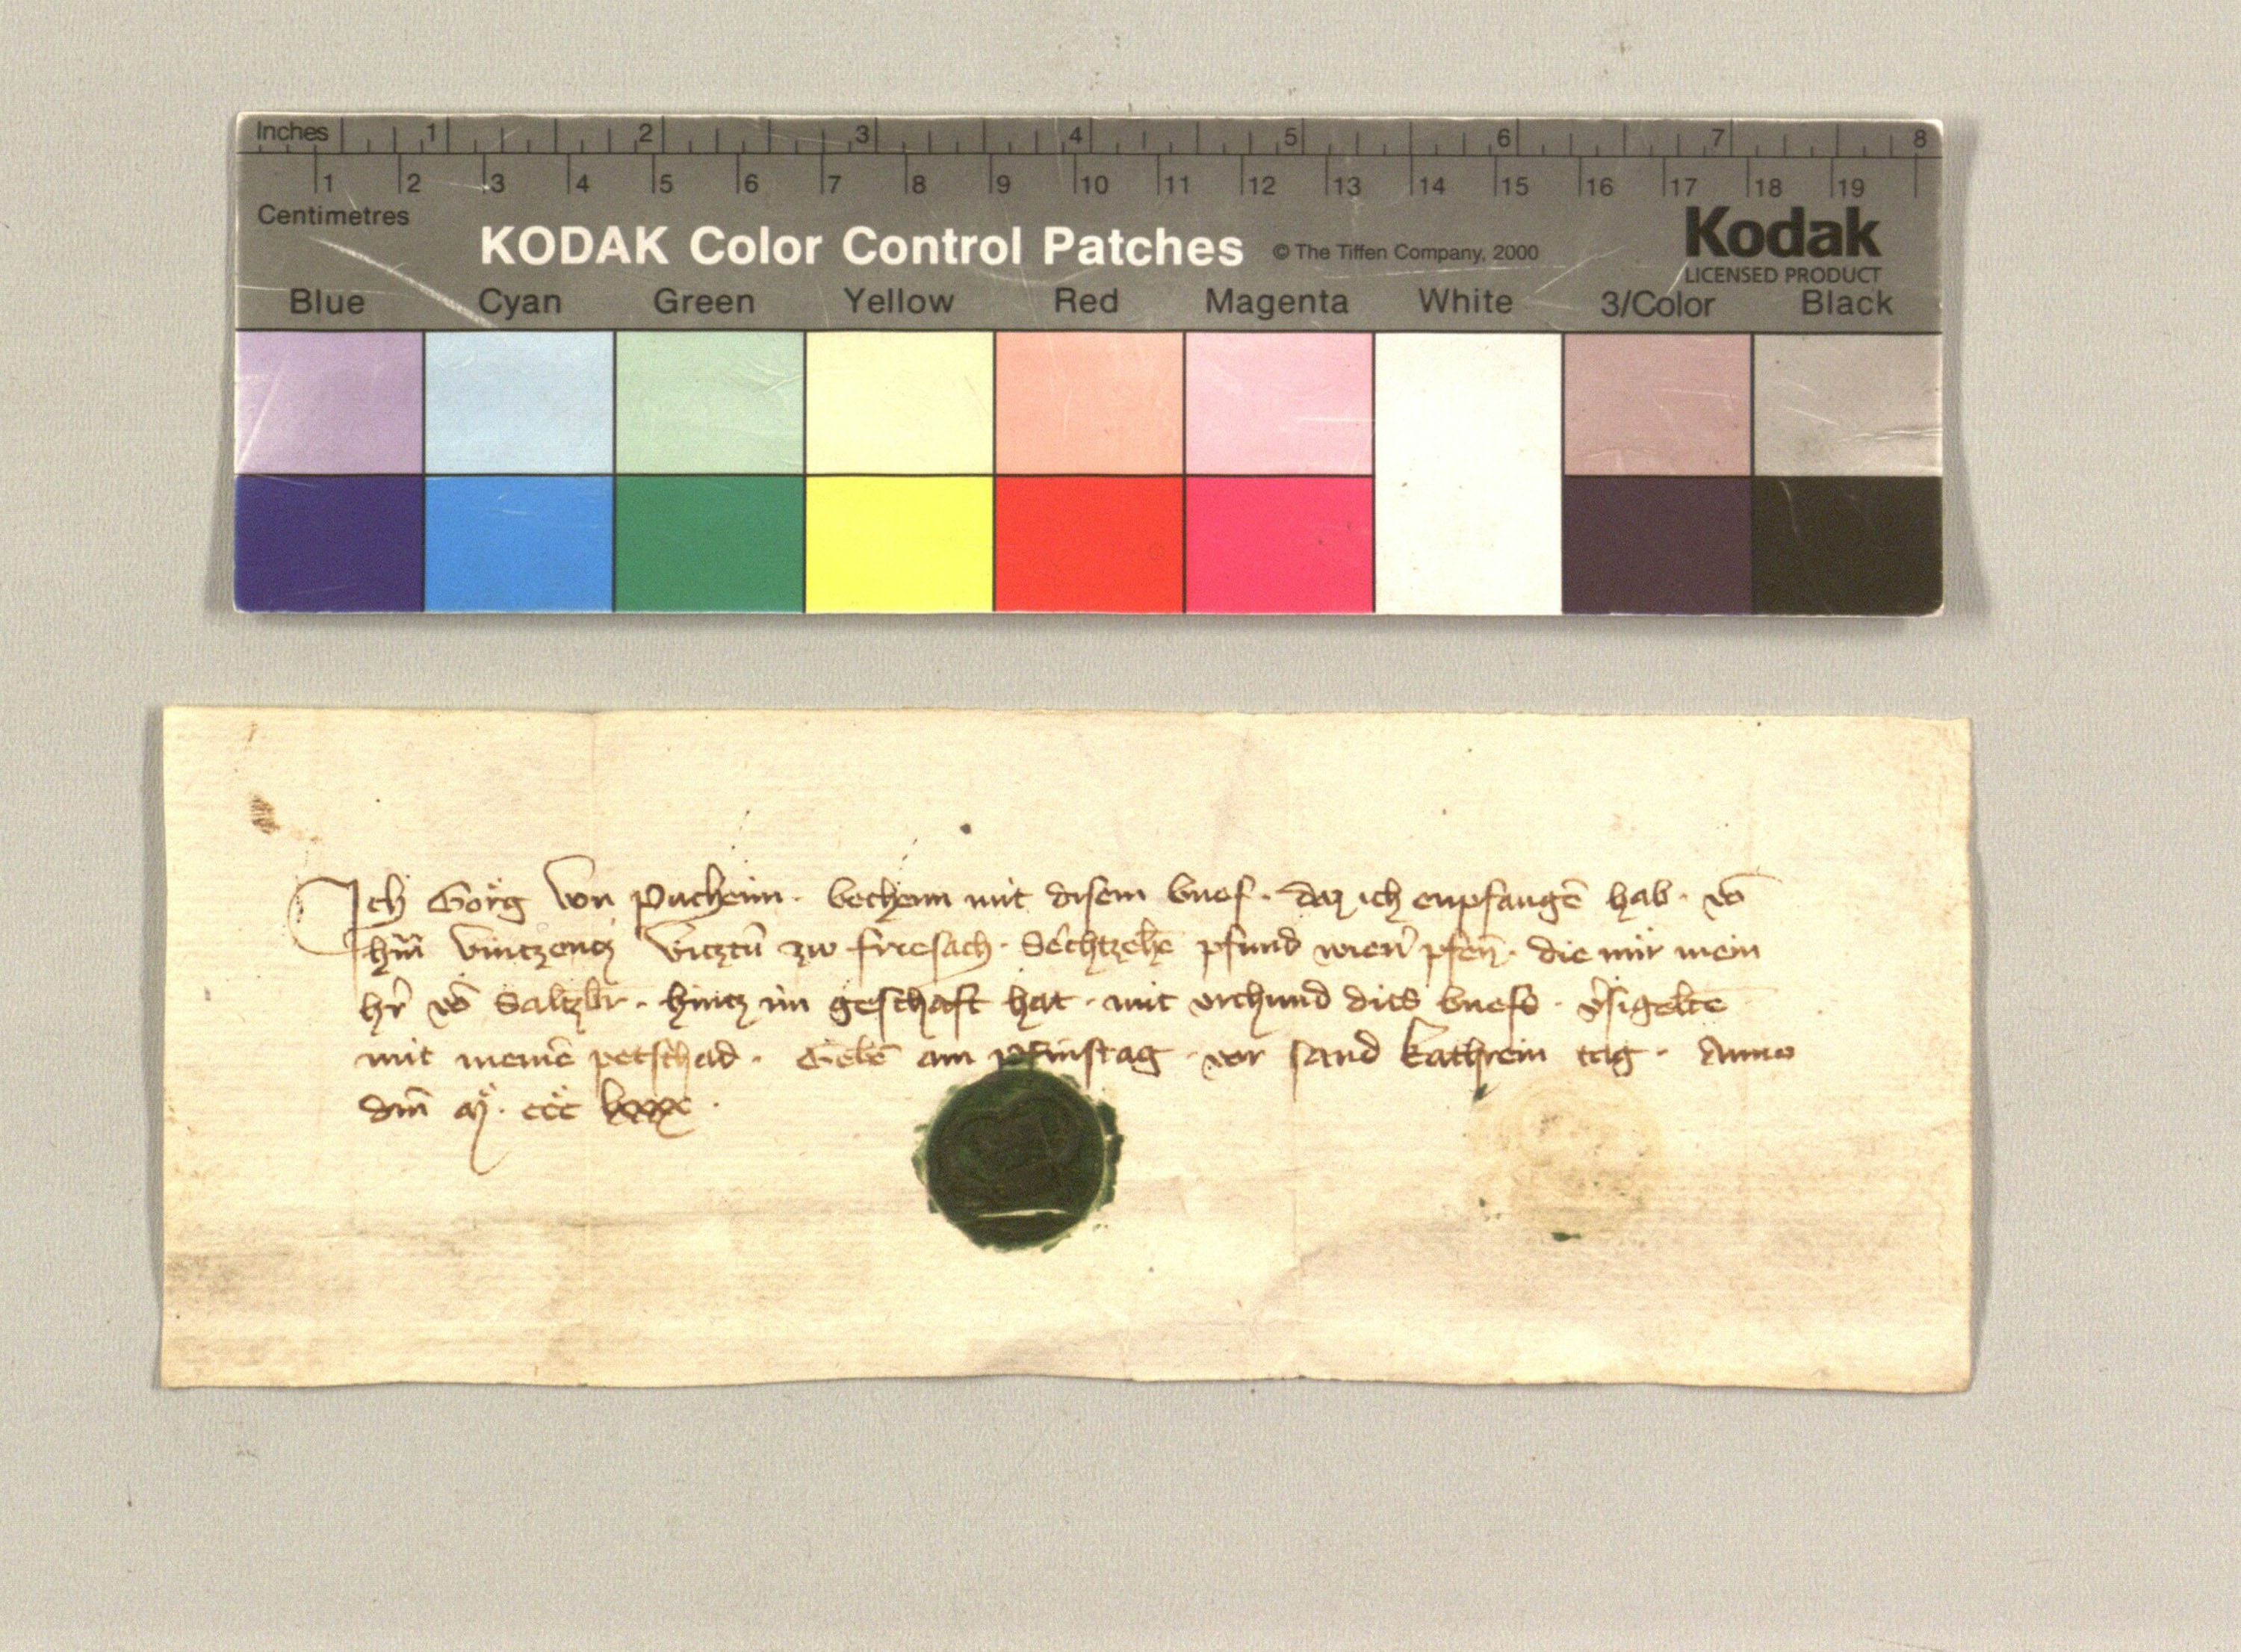 Inches 1 2 3 4 5 6 7 8
1 2 3 4 5 6 7 8 9 10 11 12 13 14 15 16 17 18 19
Centimetres
KODAK Color Control Patches © The Tiffen Company, 2000 Kodak
LICENSED PRODUCT
Blue Cyan Green Yellow Red Magenta White 3/Color Black
Ich Görg von Pucheim · bechenn mit disem brief · daz ich enpfangē hab · vō
hrn̄ vintzencz vicztū zw friesach · Sechtzehē pfund wien̄ pfen̄ · die mir mein
hr̄ vō Saltzbr̄ · hincz im geschaft hat · mit vrchund dits briefs · v̄sigelte
mit meinē petschad · Gebē am pfinstag · vor sand kathrein tag · Anno
dm̄ mͦ · cccͦ lxxx ·